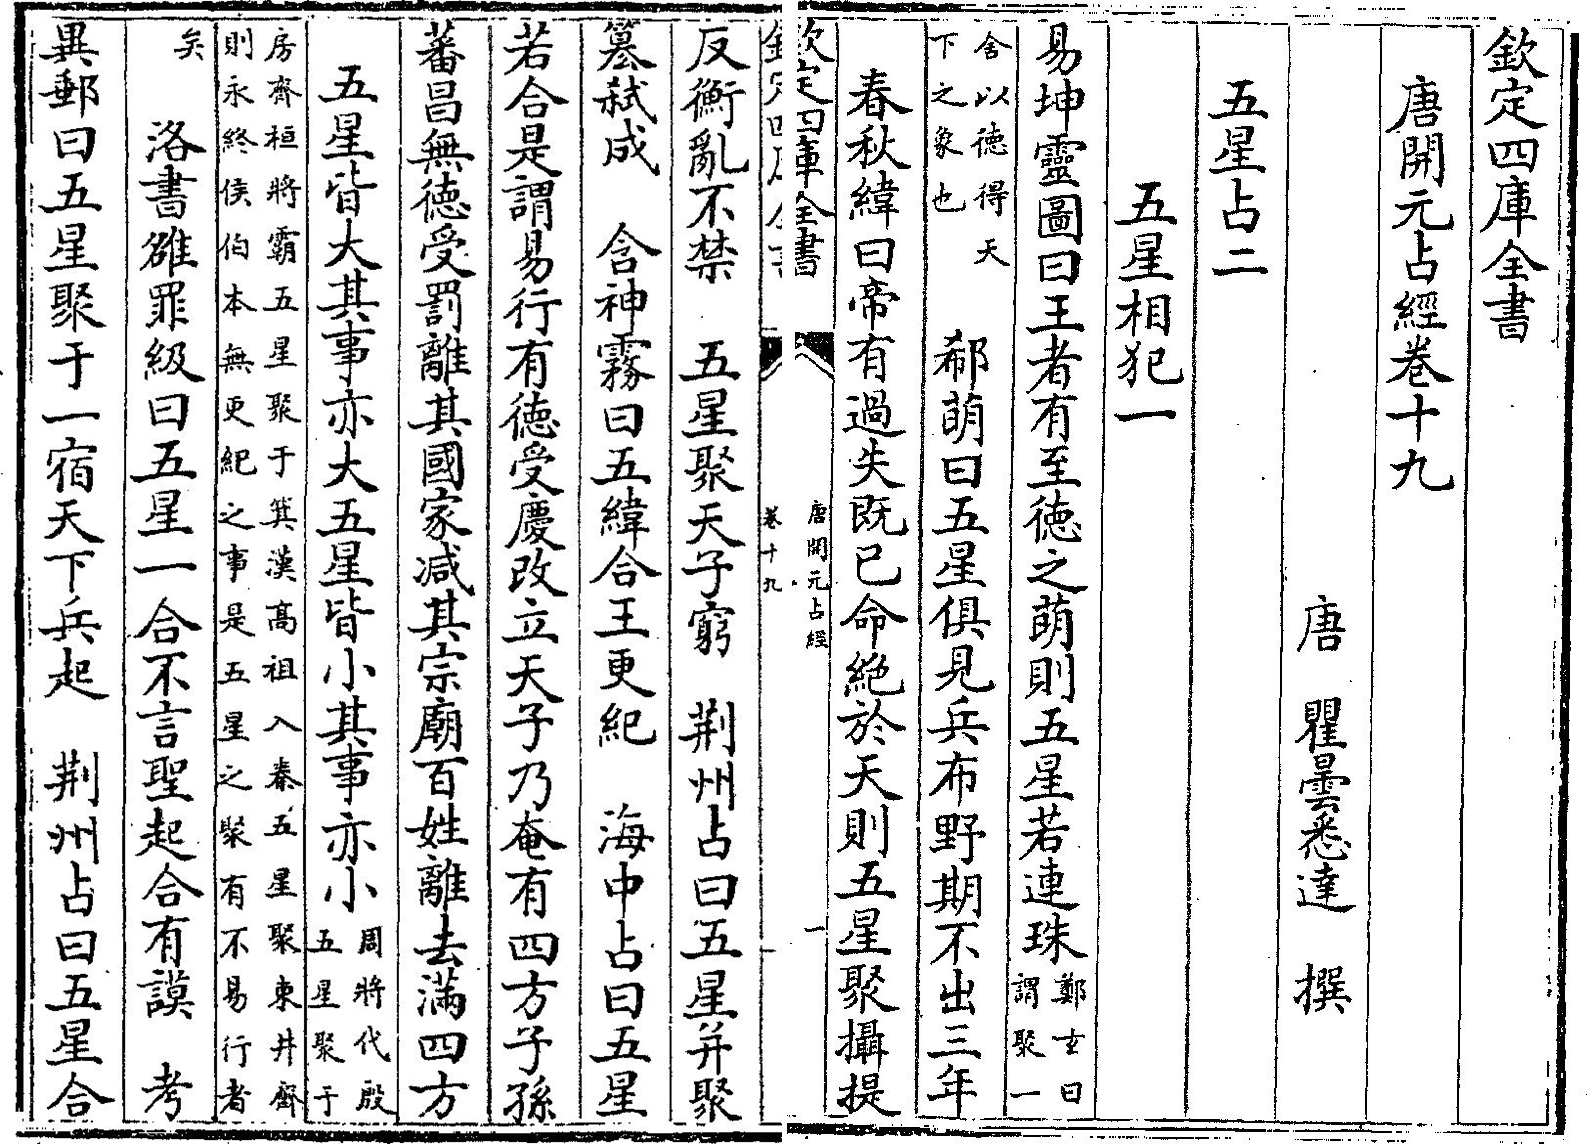 欽定四庫全書
唐開元占經卷十九
唐　瞿曇悉達　撰
五星占二
五星相犯一
易坤靈圖曰王者有至徳之萌則五星若連珠鄭𤣥曰謂聚一
舍以德得天下之象也　郗萌曰五星俱見兵布野期不出三年
春秋緯曰帝有過失既已命絶於天則五星聚攝提
唐開元占經　一
欽定四庫全書　卷十九
反衡亂不禁　五星聚天子窮　荆州占曰五星并聚
簒弑成　含神霧曰五緯合王更紀　海中占曰五星
若合是謂易行有徳受慶改立天子乃奄有四方子孫
蕃昌無徳受罰離其國家减其宗廟百姓離去滿四方
五星皆大其事亦大五星皆小其事亦小周將代殷五星聚于
房齊桓將霸五星聚于箕漢髙祖入秦五星聚東井齊則永終侯伯本無更紀之事是五星之聚有不易行者
矣　洛書雒罪級曰五星一合不言聖起合有謨　考
異郵曰五星聚于一宿天下兵起　荆州占曰五星合